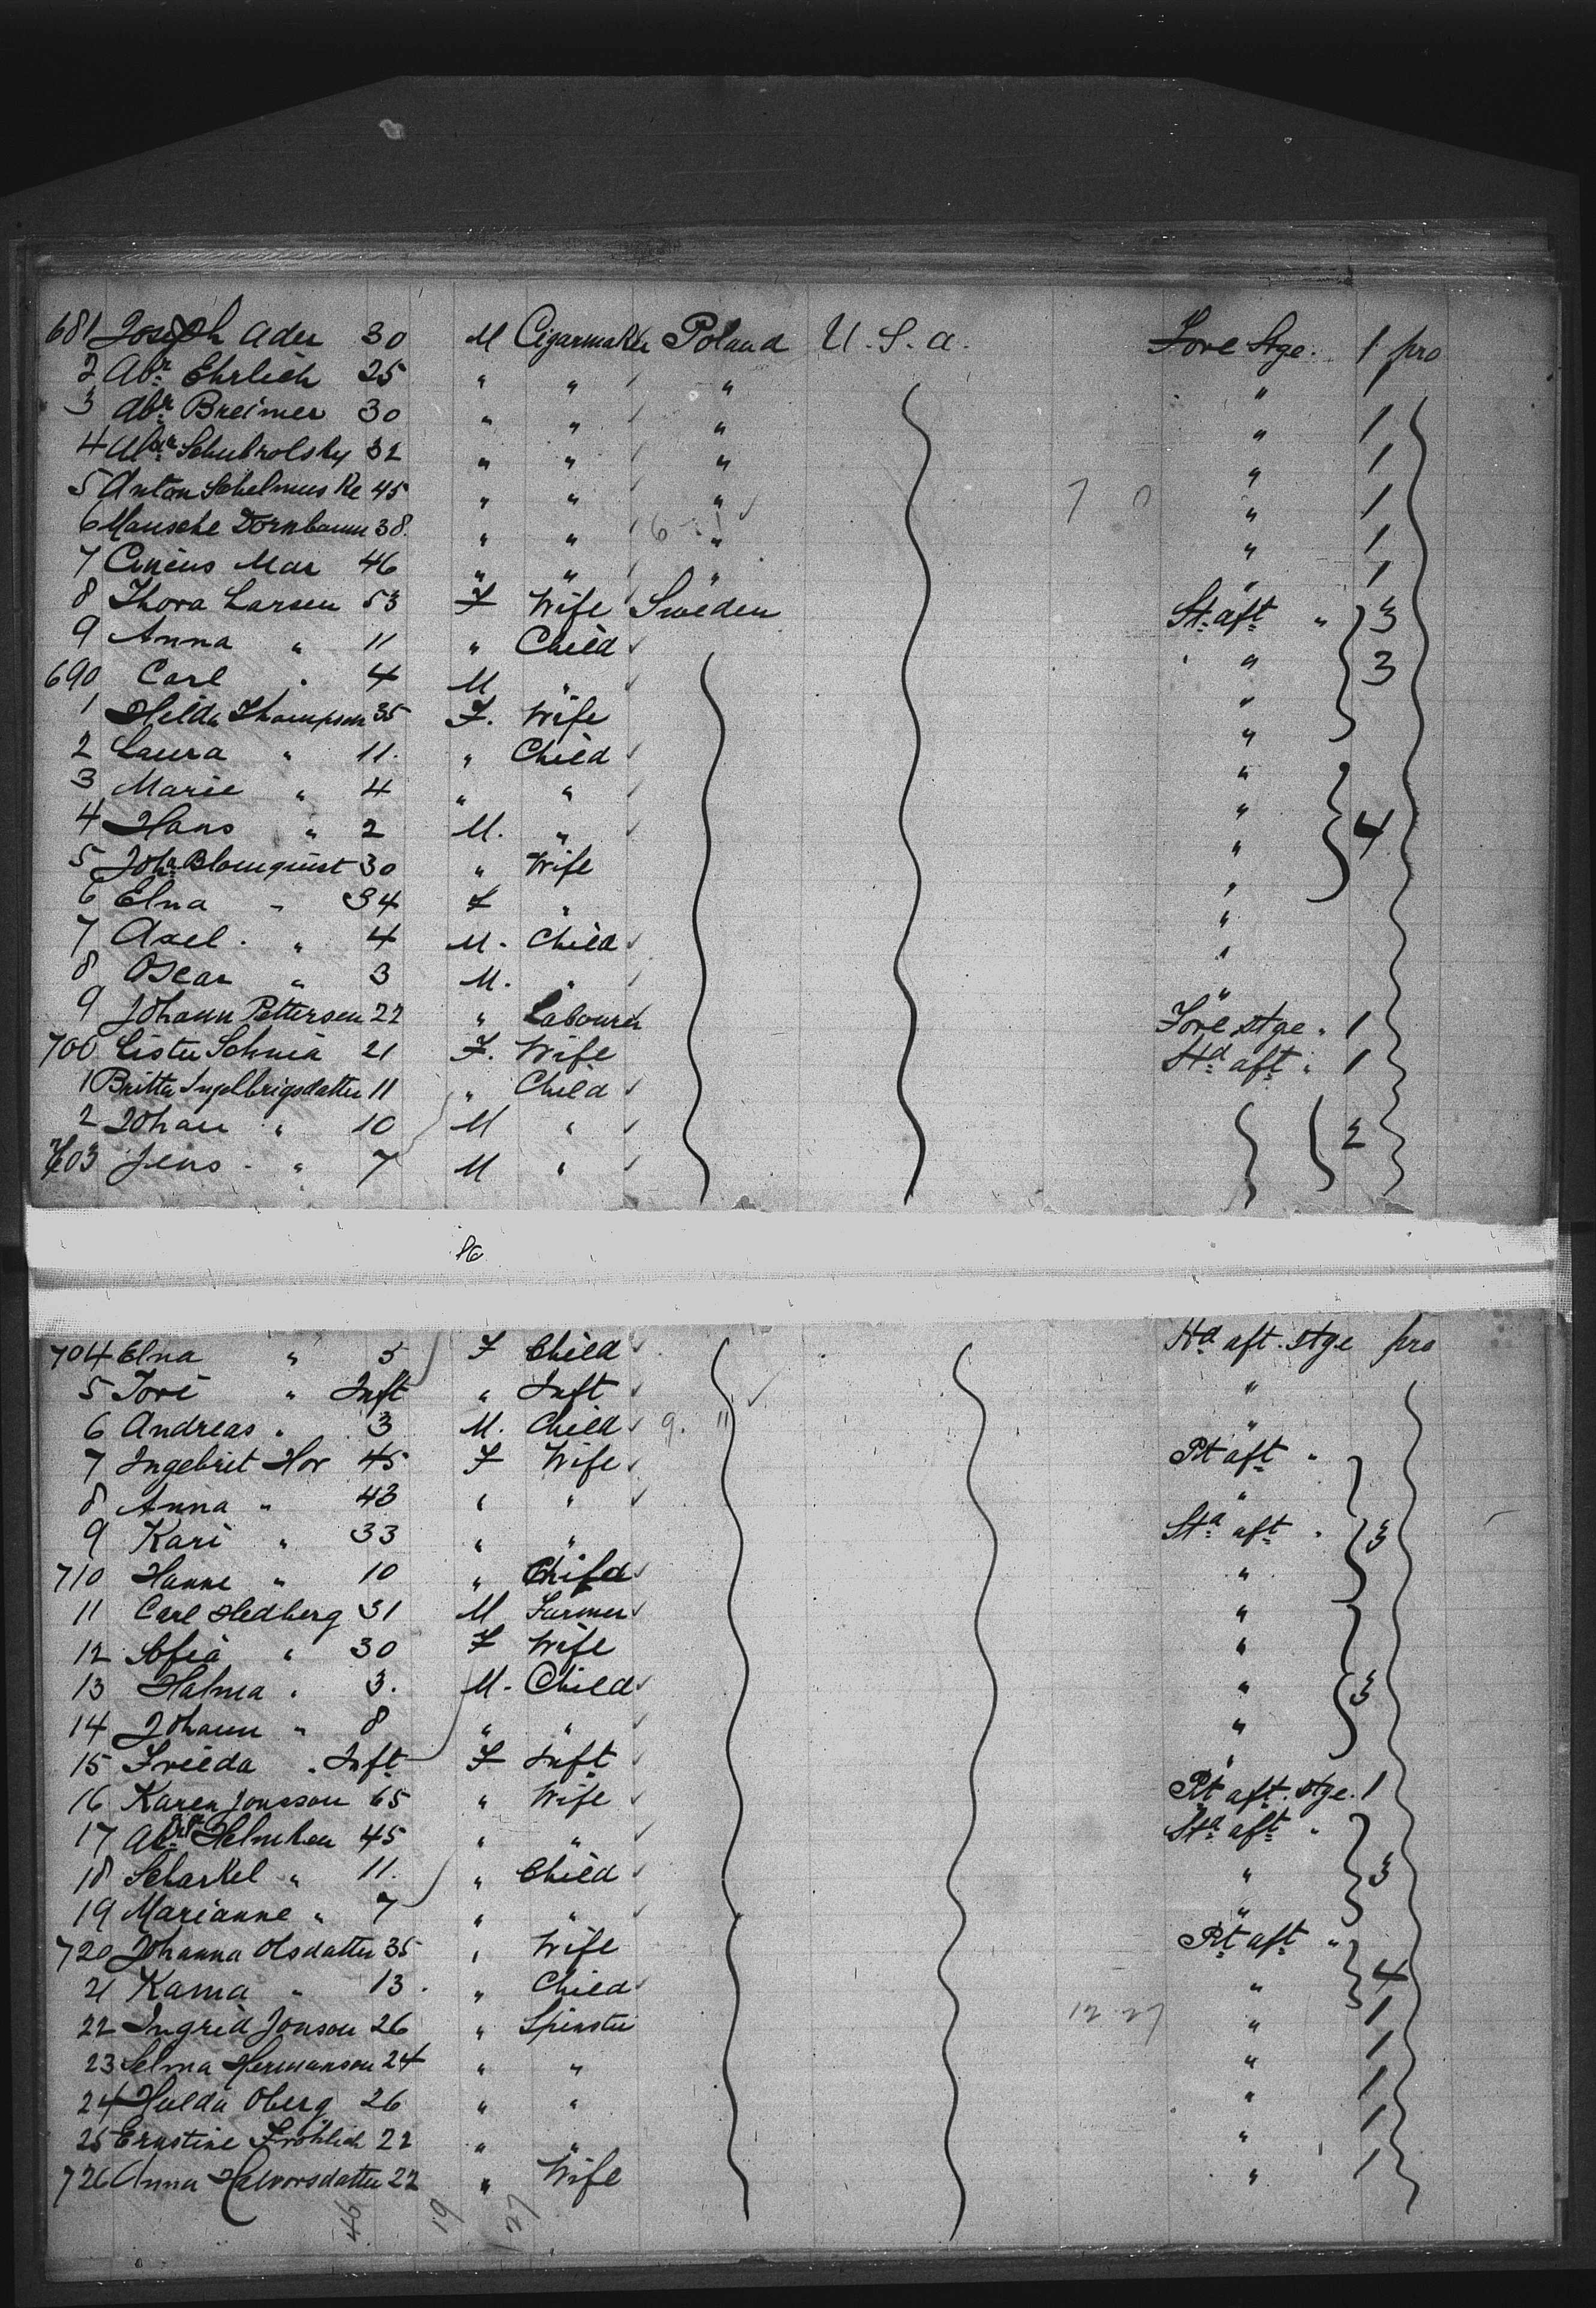 681 Joseph Ader 30 M Cigarmaker Poland U.S.a. Fore Stge. 1 pro
2 Abr. Ehrlich 25 " " " " 1
3 Abr. Breimer 30 " " " " 1
4 Abr. Schubrolsky 32 " " " " 1
5 Anton Schelmus Ke 45 " " " " 1
6 Mausche Dornbaum 38. " " " " 1
7 Cincius Mar 46 " " " " 1
8 Thora Larsen 53 F Wife Sweden St. aft " 3
9 Anna " 11 " Child " 3
690 Carl " 4 M " "
1 Hilda Thompson 35 F. Wife "
2 Laura " 11. " Child "
3 Marie " 4 " " "
4 Hans " 2 M. " " 4
5 Joha. Blomquist 30 " Wife "
6 Elna " 34 F " "
7 Axel. " 4 M. Child "
8 Oscar " 3 M. " "
9 Johann Pettersen 22 " Labourer Fore stge " 1
700 Lister Schnia 21 F. Wife Std aft " 1
1 Britta Ingelbrigsdatter 11 " Child
2 Johan " 10 M " 2
703 Jens " 7 M "
86
704 Elna " 5 F Child Std aft. stge pro
5 Tori " Inft " Inft "
6 Andreas " 3 M. Child 9. 11 "
7 Ingebrit Hor 45 F Wife Pt aft "
8 Anna " 43 " " "
9 Kari " 33 " " Sta aft " 3
710 Hanne " 10 " Child "
11 Carl Hedberg 31 M Farmer "
12 Sofia " 30 F Wife "
13 Halma " 3. M. Child " 3
14 Johann " 8 " " "
15 Frieda " Inft F Inft "
16 Karen Jonsson 65 " Wife Pt aft. stge. 1
17 Helmken 45 " " Sta aft "
18 Scharkel " 11. " Child " 3
19 Marianne " 7 " " "
720 Johanna Olsdatter 35 " Wife Pt aft "
21 Kama " 13. " Child " 4
22 Ingrid Jonson 26 " Spinster 12 27 " 1
23 Selma Hermanson 24 " " " 1
24 Hulda Oberg 26 " " " 1
25 Ernstine Fröhlich 22 " " " 1
726 Anna Halvorsdatter 22 " Wife " 1
46 19 27